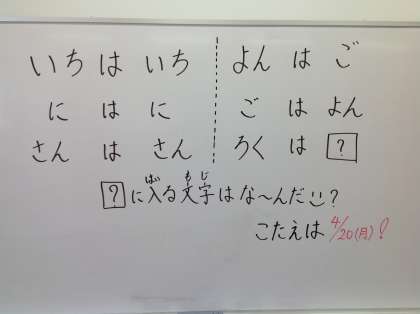 いち は いち よん は ご
に は に ご は よん
さん は さん ろく は ?
?に入る文字はな〜んだ?
ば もじ
こたえは 4/20(月)!